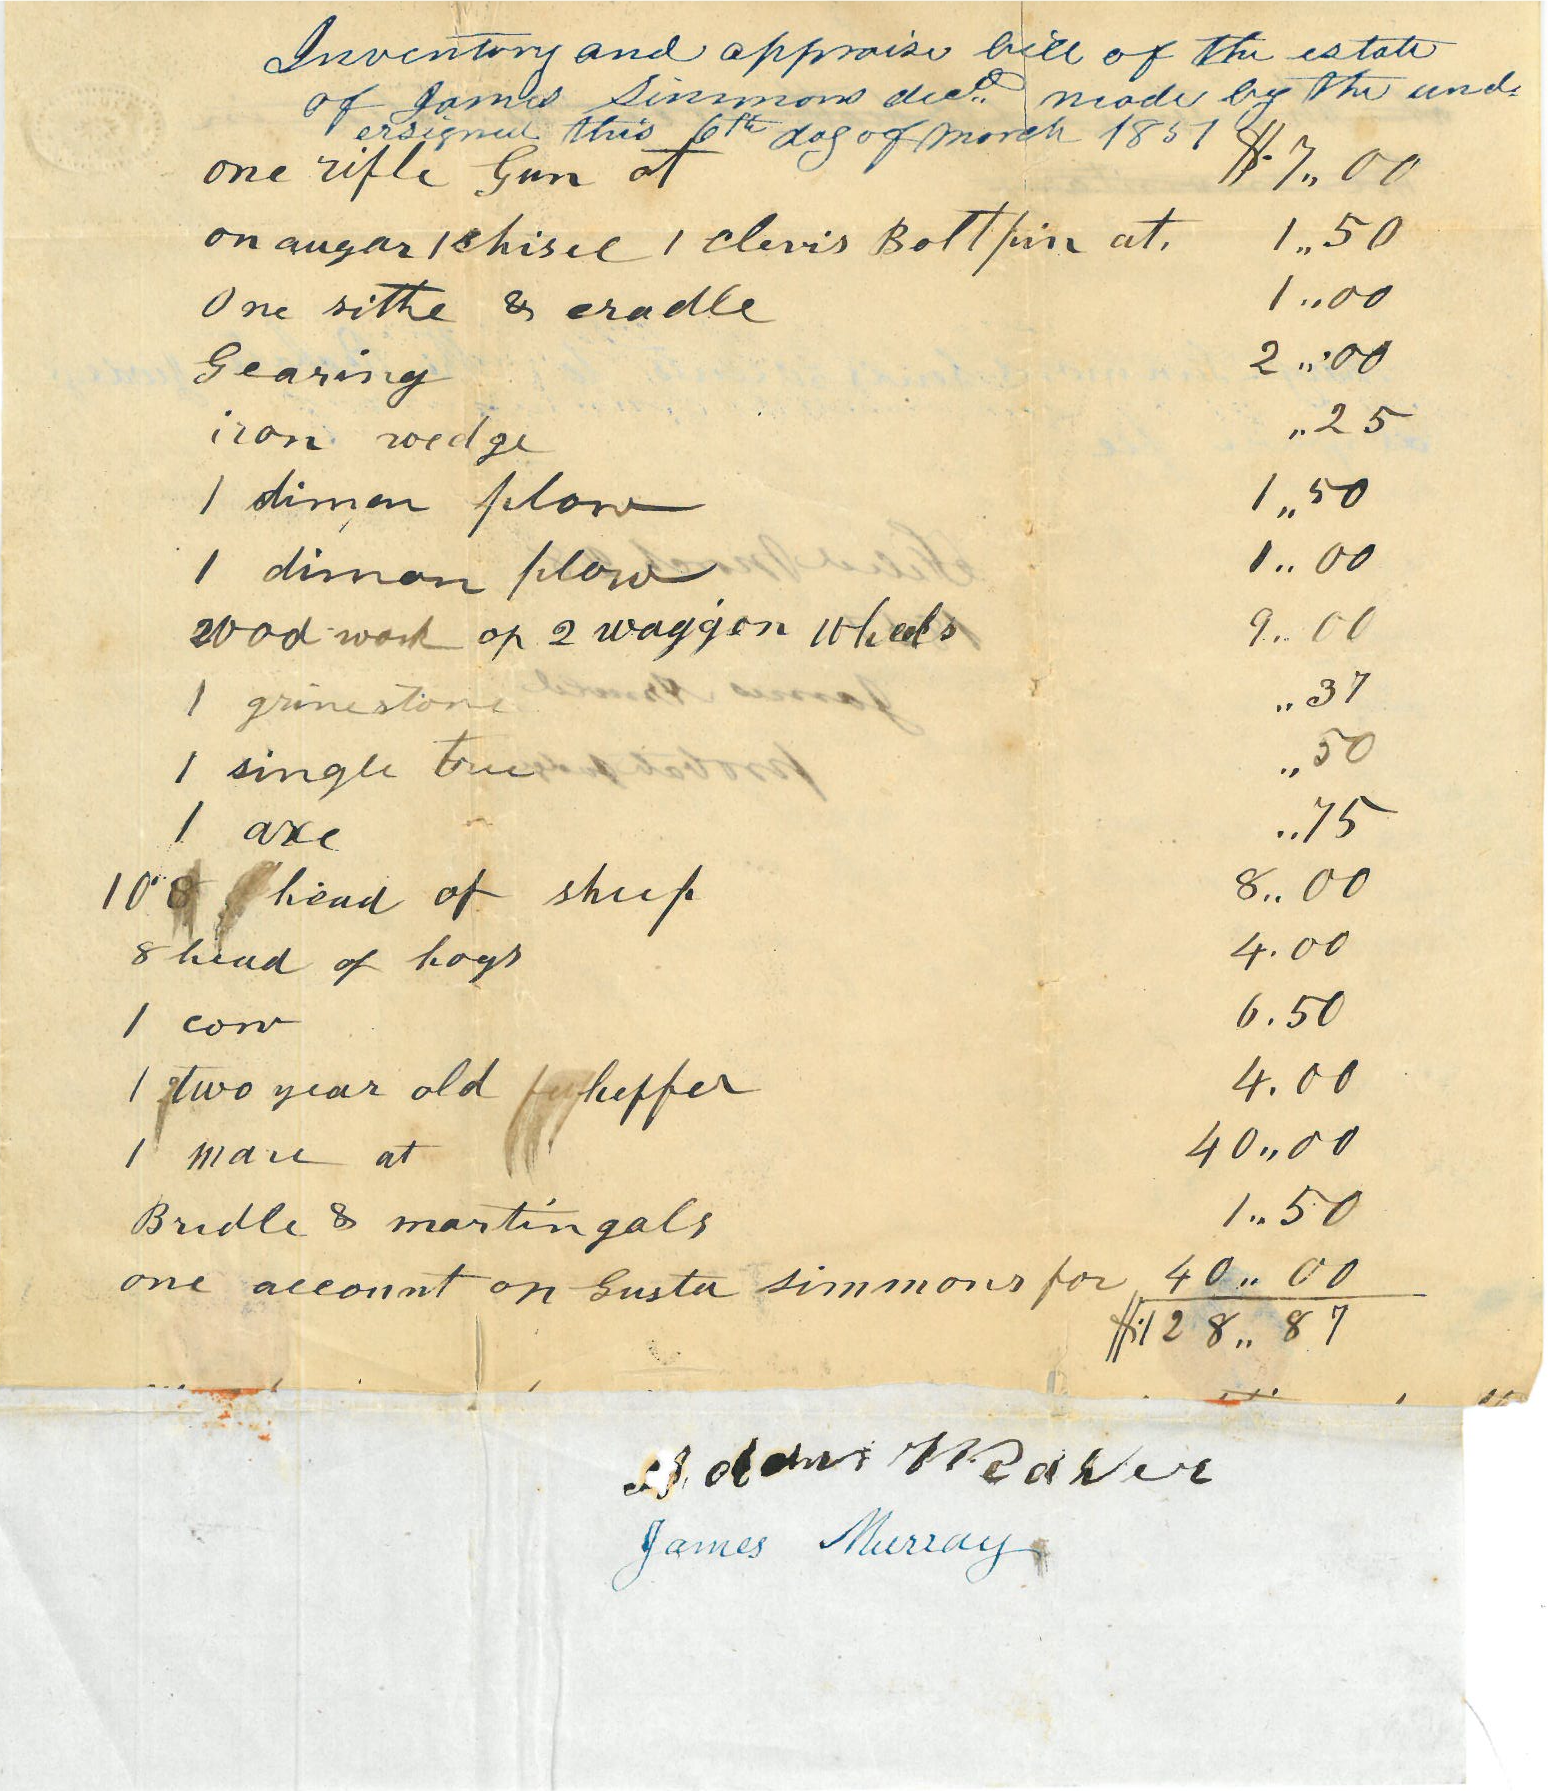 Inventory and appraise bill of the estate
of James Simmons decd. made by the und-
ersigned this 6th day of March 1851
one rifle Gun at $7,,00
on augar 1 chisel 1 clevis Bolt pin at. 1,,50
One sithe & cradle 1,,00
Gearing 2,,00
iron wedge ,,25
1 dimon plow 1,,50
1 dimon plow 1,,00
wood work of 2 waggon Wheels 9,,00
1 grinestone ,,37
1 single tree ,,50
1 axe ,,75
10 8 head of sheep 8,,00
8 head of hogs 4.00
1 cow 6.50
1 two year old heffer 4.00
1 mare at 40,,00
Bridle & martingals 1,,50
one account on Simmons for 40,,00
$128,,87
Weaver
James Murray